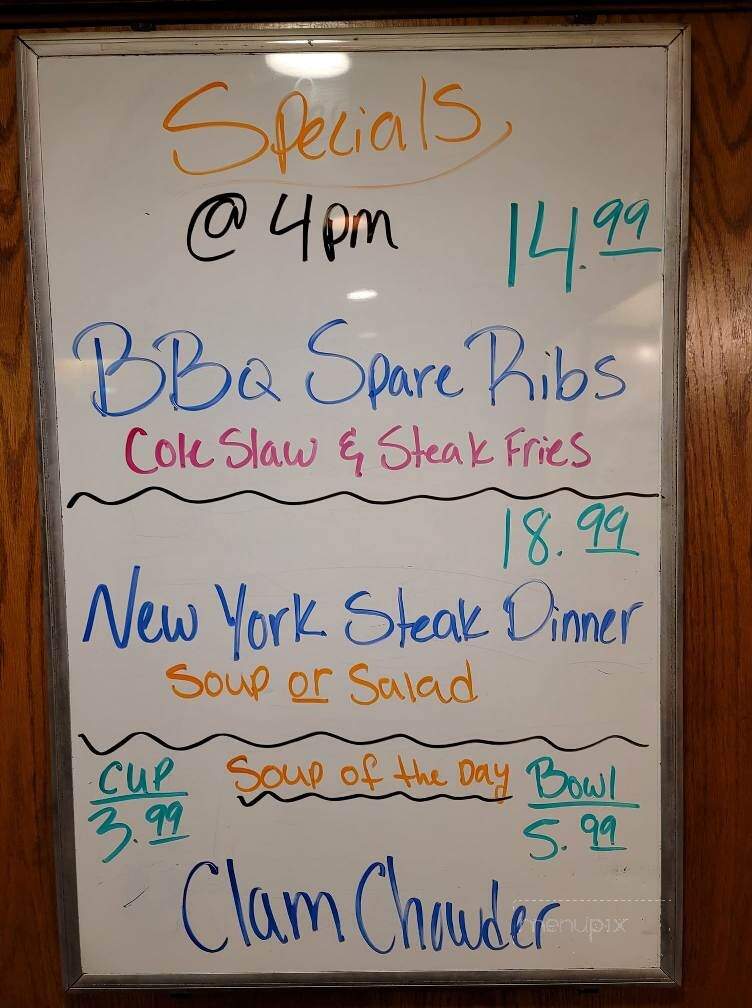 Specials
@ 4pm
14.99
BBQ Spare Ribs
Cole Slaw & Steak Fries
18.99
New York Steak Dinner
Soup or Salad
Cup Soup of the Day Bowl
3.99 5.99
Clam Chowder
menupix